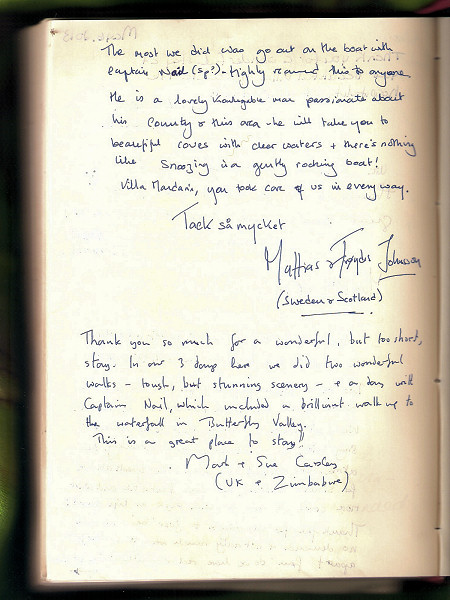 The most we did was go out on the boat with
Captain Nail (sp?) - Highly recomend this to anyone
He is a lovely Knowlegable man passionate about
his Country & this area - he will take you to
beautiful coves with clear waters + there's nothing
like Snoozing in a gently rocking boat!
Villa Mandarin, you took care of us in every way.
Tack så mycket
Mattias & Frøydis Johnsson
(Sweden & Scotland)
Thank you so much for a wonderful, but too short,
stay. In our 3 days here we did two wonderful
walks - tough, but stunning scenery - + a day with
Captain Nail, which included a brilliant walk up to
the waterfall in Butterfly Valley.
This is a great place to stay!!
Mark + Sue
(UK + Zimbabwe)